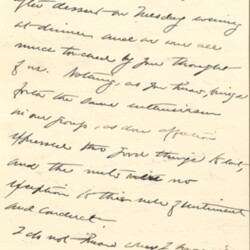 after dessert on Tuesday evening
at dinner, and we were all
much touched by your thought
of us. Nothing, as you know, brings
forth the same enthusiasm
in our group, as does affection
expressed thru good things to eat,
and the melons were no
exception to this rule of sentiment
and conduct.
I do not know when I